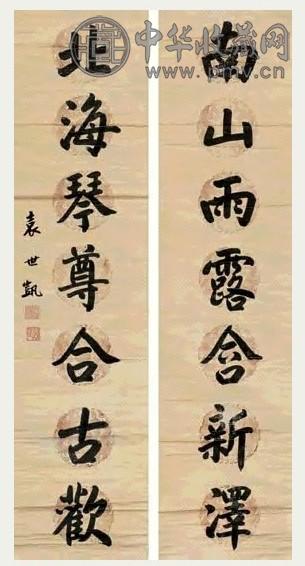 中华收藏网
www.pmv.cn
南山雨露含新澤
北海琴尊合古歡
袁世凱